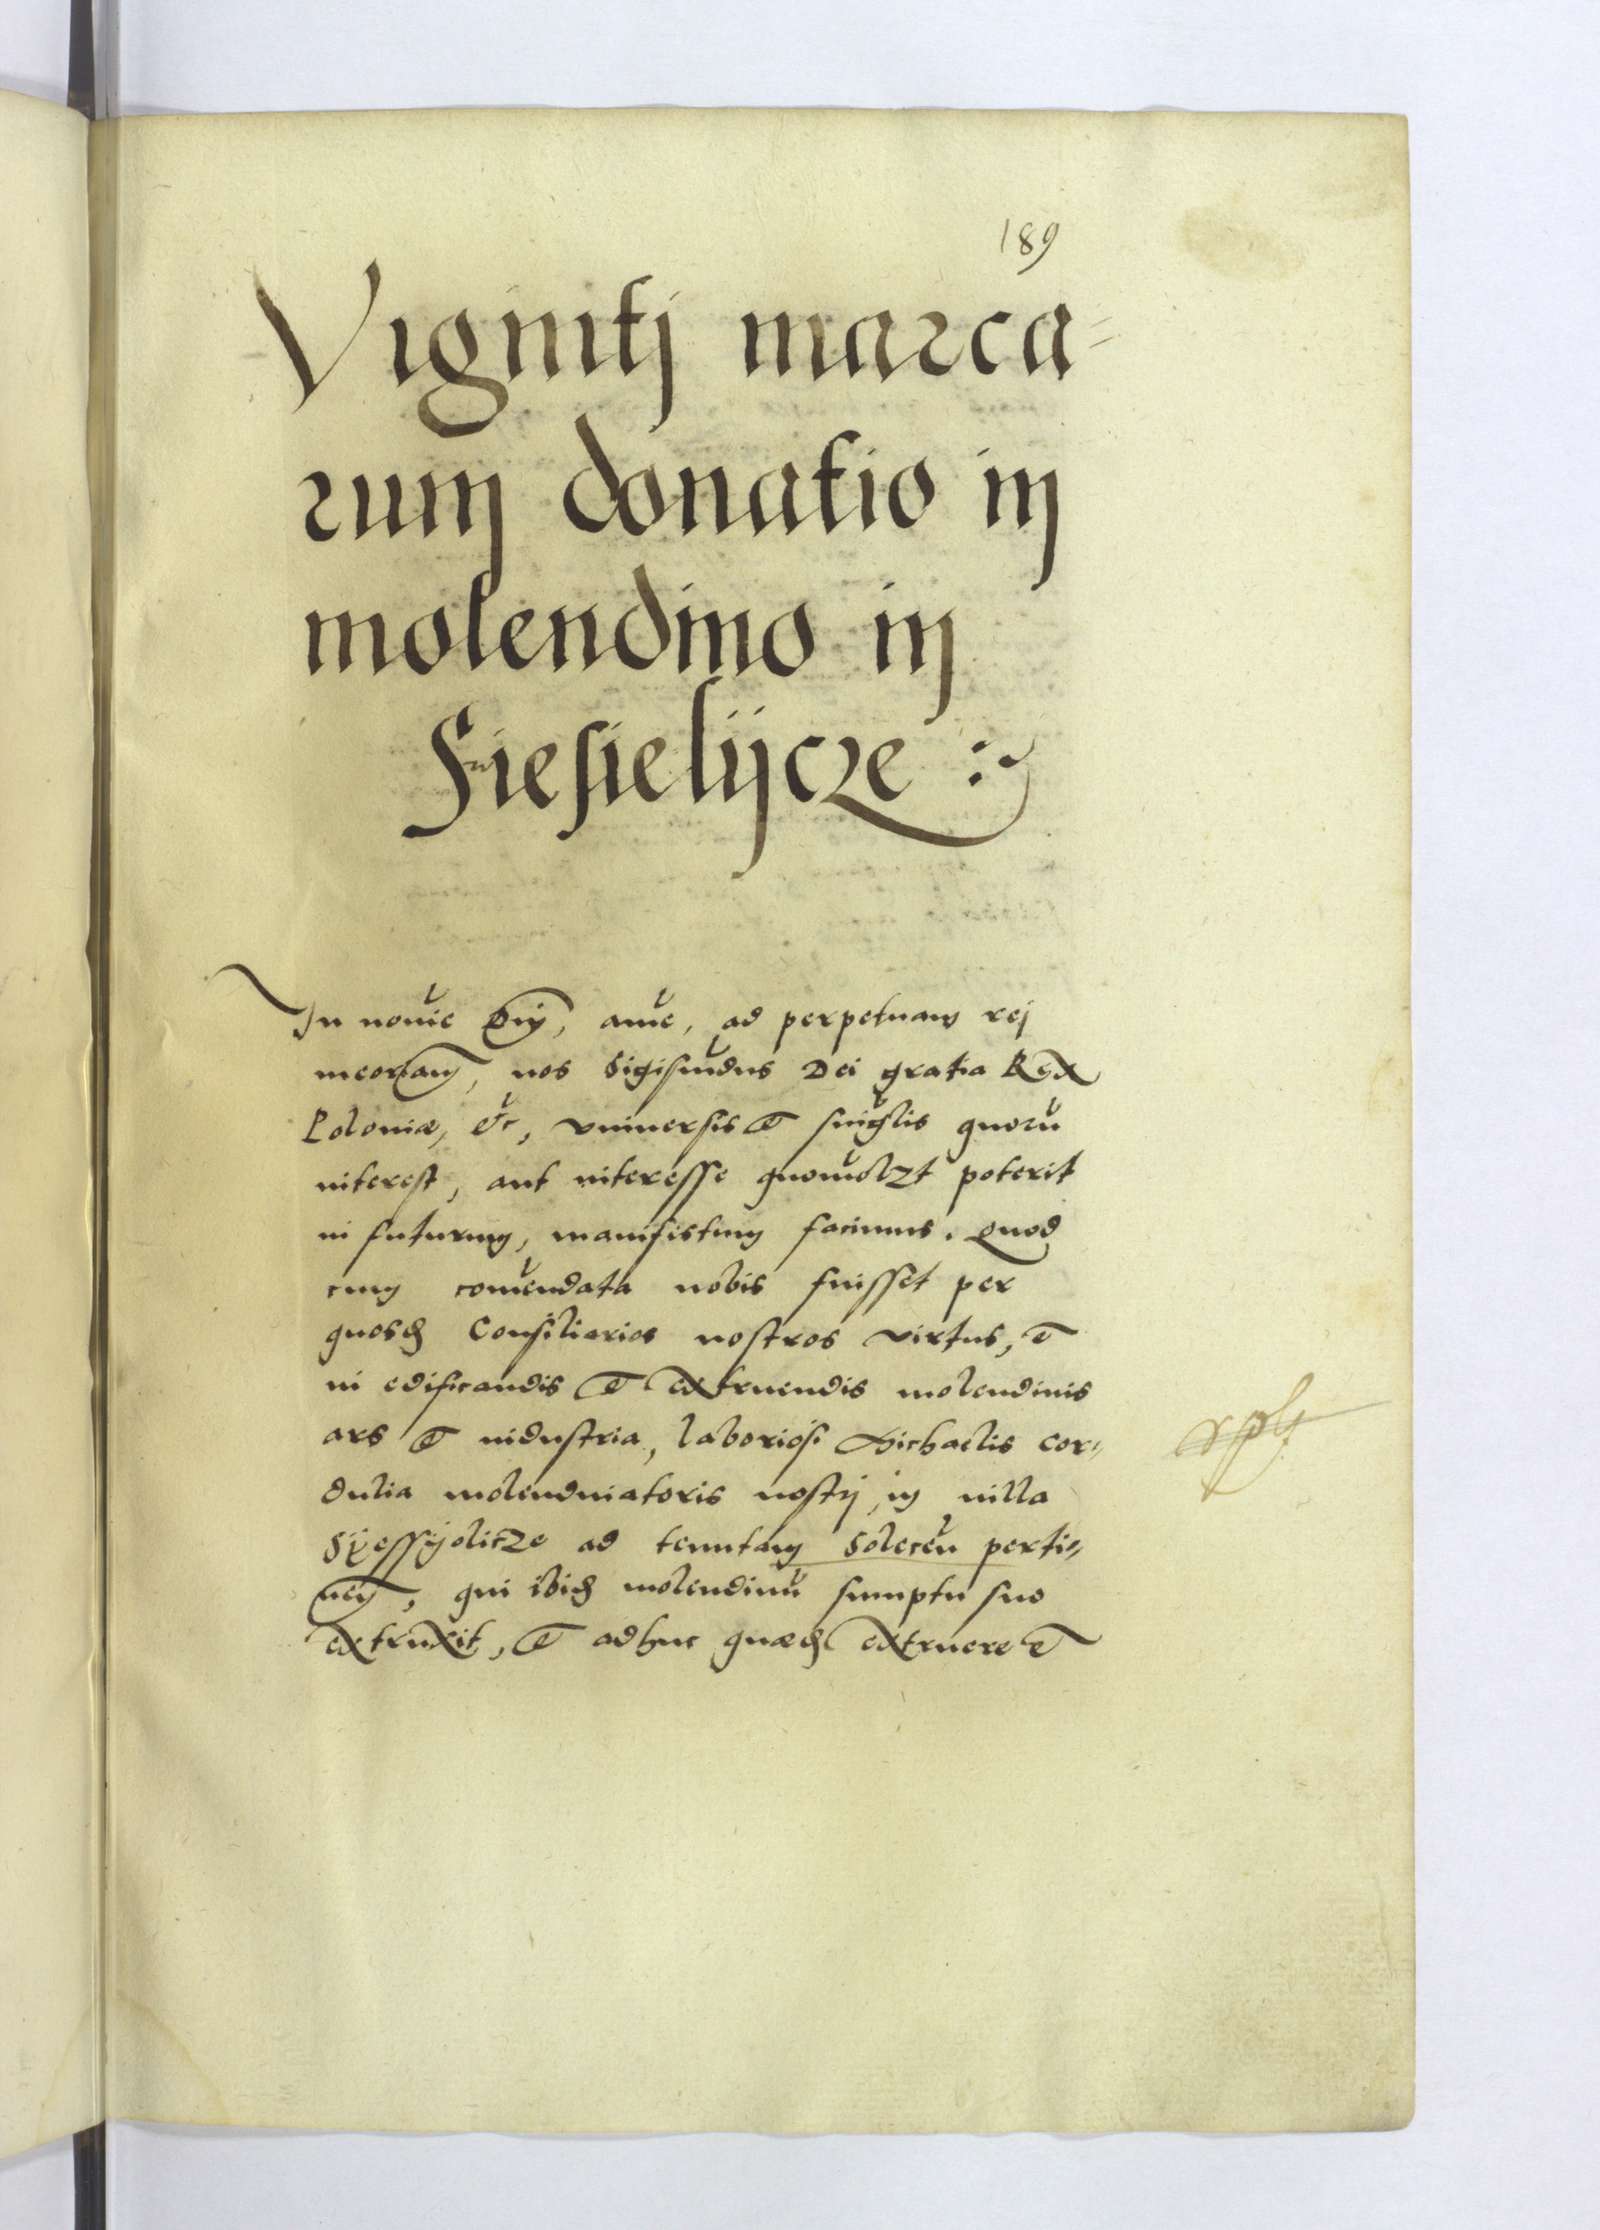 189
Viginti marca-
rum donatio in
molendino in
Siesielijcze :~
In noīe Dnj, ame, ad perpetuam rej
meoriam, nos Sigismūdus Dei gratia Rex
Poloniæ, &c, vniuersis et singlis quorū
interest, aut interesse quomolzt poterit
in futurum, manifestum facimus. Quod
cum comendata nobis fuisset per
quosd Consiliarios nostros virtus, et
in edificandis et extruendis molendinis
ars et industria, laboriosi Michaelis Cor-
dulia molendinatoris nostrj, in uilla
Syessyolicze ad tenutam Solecen perti-
nen, qui ibid molendinū sumptu suo
extruxit, et adhuc quæd extruere et